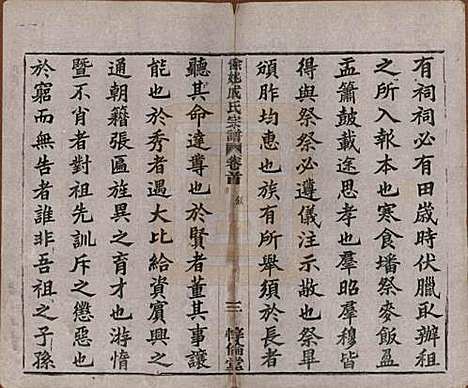 有祠祠必有田歲時伏臘取辦租
之所入報本也寒食墦祭麥飯盈
盂簫鼓載途思孝也羣昭羣穆皆
得與祭祭必遵儀注示敬也祭畢
頒胙均惠也族有所舉須於長者
餘姚戚氏宗譜 卷首 叙 三 惇倫堂
聽其命達尊也於賢者董其事讓
能也於秀者遇大比給資賓興之
通朝籍張區旌異之育才也游惰
暨不肖者對祖先訓斥之懲惡也
於窮而無告者誰非吾祖之子孫